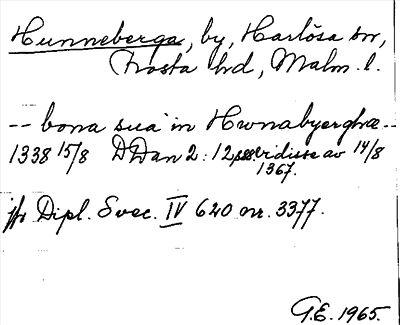 Hunneberga, by, Harlösa sn,
Frosta hd, Malm. l.
-- bona sua in Hwnabyerghæ --
1338 15/8 DDan 2: 12, vidisse av 14/8
1367.
jfr Dipl. Svec. IV 640 nr. 3377.
G.E. 1965.